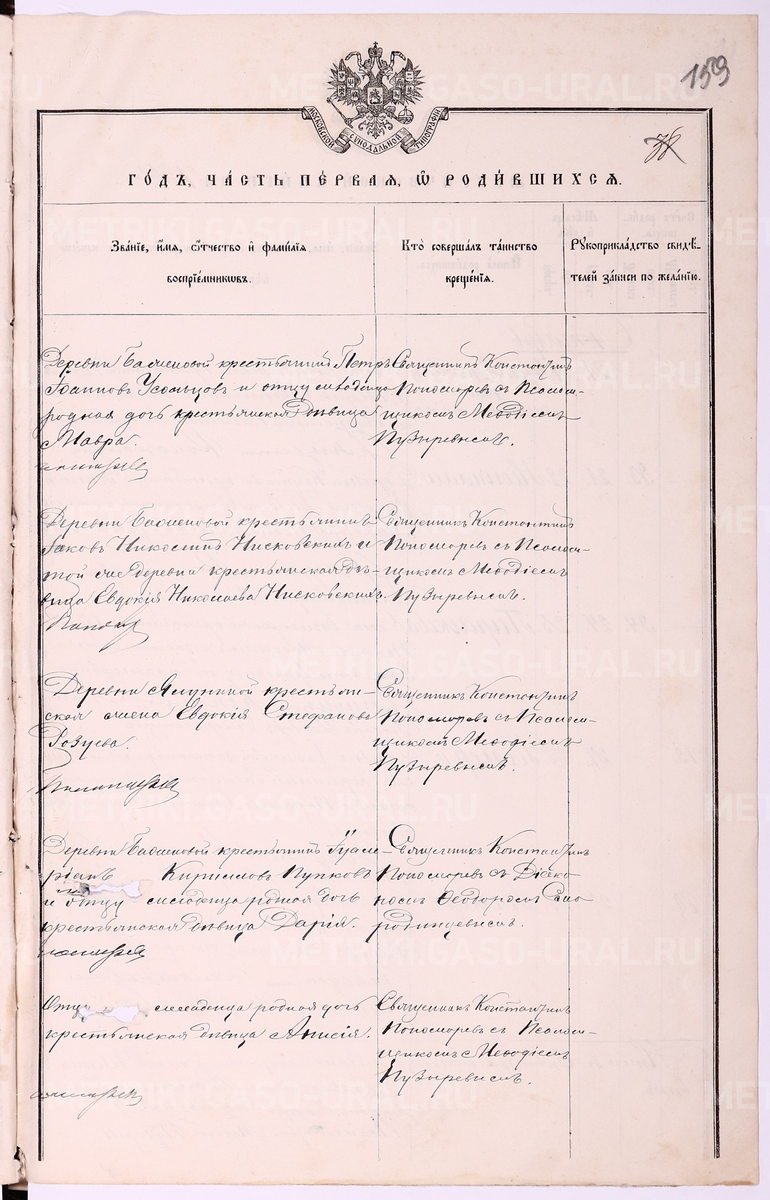 159
МОСКОВСКОЙ СѴНОДАЛЬНОЙ ТИПОГРАФІИ
ГОДЪ, ЧАСТЬ ПЕРВАЯ, Ѿ РОДИВШИХСЯ.
Званіе, имя, отчество и фамилія
воспріемниковъ.
Кто совершалъ таинство
крещенія.
Рукоприкладство свидѣ-
телей записи по желанію.
Деревни крестьянинъ Петръ
Іоанновъ Усольцовъ и отцу младенца
родная дочь крестьянская дѣвица
Мавра.
Священникъ Константинъ
Пономаревъ съ Псалом-
щикомъ Меѳодіемъ
Пузыревымъ.
Деревни крестьянинъ
Іаковъ Нисковскихъ и
той же деревни крестьянская дѣ-
вица Евдокія Николаева Нисковскихъ.
Священникъ Константинъ
Пономаревъ съ Псалом-
щикомъ Меѳодіемъ
Пузыревымъ.
Деревни Ялуниной крестьян-
ская жена Евдокія Стефанова
Священникъ Константинъ
Пономаревъ съ Псалом-
щикомъ Меѳодіемъ
Пузыревымъ.
Деревни крестьянинъ
Кирилловъ Пупковъ
и отцу младенца родная дочь
крестьянская дѣвица Дарія.
Священникъ Константинъ
Пономаревъ съ Діако-
номъ Ѳеодоромъ
Отцу младенца родная дочь
крестьянская дѣвица Анисія.
Священникъ Константинъ
Пономаревъ съ Псалом-
щикомъ Меѳодіемъ
Пузыревымъ.
METRIKI.GASO-URAL.RU